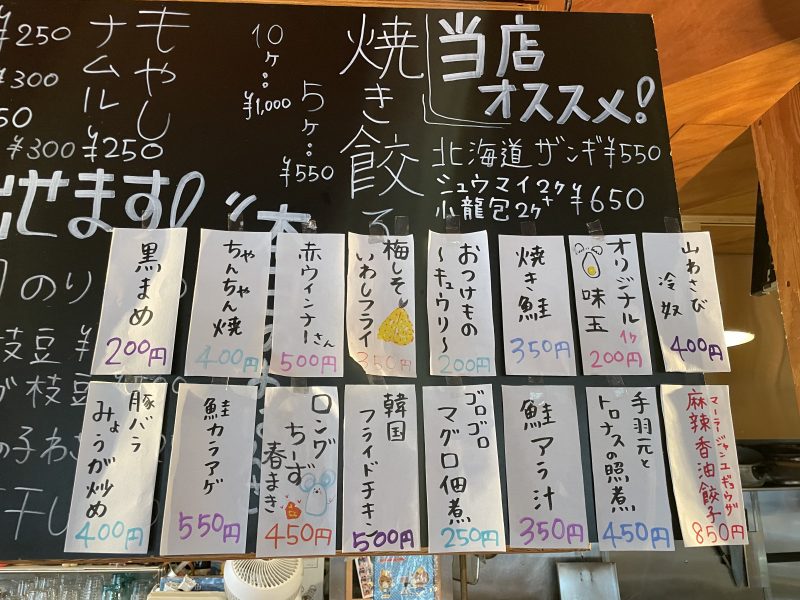 当店
オススメ!
北海道ザンギ¥550
シュウマイ2ケ
小龍包2ケ
+
¥650
焼き餃子
5ケ:
¥550
10ケ:
¥1,000
もやし
ナムル
¥250
¥250
¥300
¥300
せます!
のり
枝豆
枝豆
山わさび
冷奴
400円
オリジナル
味玉
1ケ
200円
焼き鮭
350円
おつけもの
〜キュウリ〜
200円
梅しそ
いわしフライ
350円
赤ウィンナーさん
500円
ちゃん
ちゃん焼
400円
黒まめ
200円
マーラージャンユギョウザ
麻辣香油餃子
850円
手羽元と
トロナスの照煮
450円
鮭アラ汁
350円
ゴロゴロ
マグロ佃煮
250円
韓国
フライドチキン
500円
ロング
ちーず
春まき
450円
鮭カラアゲ
550円
豚バラ
みょうが炒め
400円